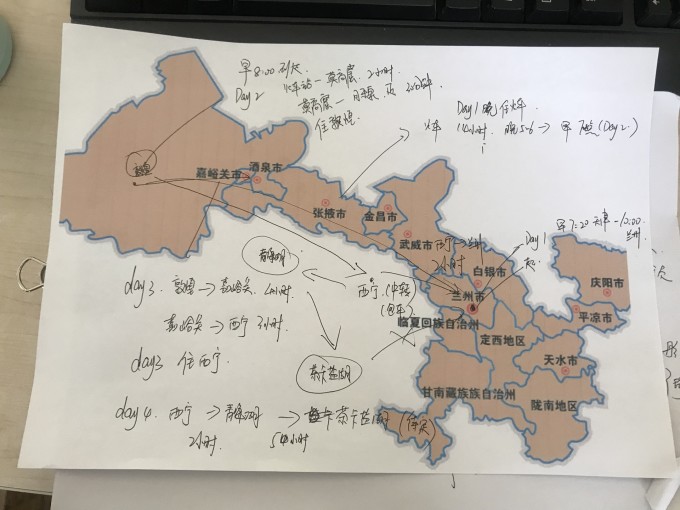 早8:00到达
Day 2 火车站—莫高窟 2小时.
莫高窟—月牙泉
住敦煌
Day1晚住火车
火车 14小时, 晚5-6→早 (Day 2)
敦煌
嘉峪关市
酒泉市
张掖市
金昌市
武威市
西宁→兰州
2小时
Day 1
早7:20天津-10:00
兰州
白银市
兰州市
庆阳市
平凉市
临夏回族自治州
定西地区
天水市
甘南藏族自治州
陇南地区
青海湖
西宁(中转
包车)
茶卡盐湖
day 3. 敦煌→嘉峪关 4小时.
嘉峪关→西宁 3小时
day3 住西宁
day 4. 西宁→青海湖→茶卡盐湖 (住宿)
2小时. 5小时.